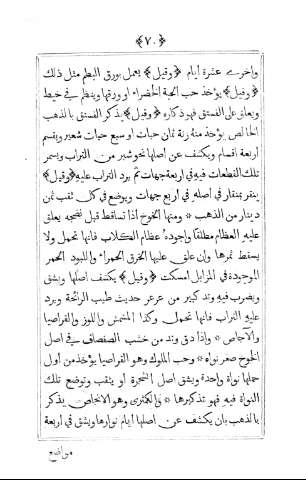 ﴿٧٠﴾
واخرى عشرة أيام ﴿وقيل﴾ يعمل بورق البطم مثل ذلك
﴿وقيل﴾ يؤخذ حب الحبة الخضراء او ورقها وينظم في خيط
ويعلق على الفستق فهو ذكاره ﴿وقيل﴾ يذكر الفستق بالذهب
الخالص يؤخذ منه زنة ثمان حبات او سبع حبات شعير ويقسم
أربعة اقسام ويكشف عن اصلها نحو شبر من التراب ويسمر
تلك القطعات فيه في اربعة جهات ثم يرد التراب عليه ﴿وقيل﴾
ينقر بمنقار في أصله في اربع جهات ويوضع في كل ثقب ثمن
دينار من الذهب * ومنها الخوخ اذا تساقط قبل نضجه يعلق
عليه العظام مطلقا واجوده عظام الكلاب فانها تحمل ولا
يسقط ثمرها وإن علق عليها الخرق الحمراء واللبود الحمر
الموجودة في المزابل امسكت ﴿وقيل﴾ يكشف أصلها ويشق
ويضرب فيه وتد كبير من عرعر حديث طيب الرائحة ويرد
عليه التراب فانها تحمل وكذا المشمش واللوز والقراصيا
والآجاص * واذا دق وتد من خشب الصفصاف في اصل
الخوخ صغر نواه * وحب الملوك وهو القراصيا يؤخذ من أول
حملها نواة واحدة ويشق اصل الشجرة أو يثقب وتوضع تلك
النواة فيه فهو تذكيرها * والكمثرى وهو الانجاص يذكر
بالذهب بان يكشف عن أصلها أيام نوارها ويشق في أربعة
مواضع